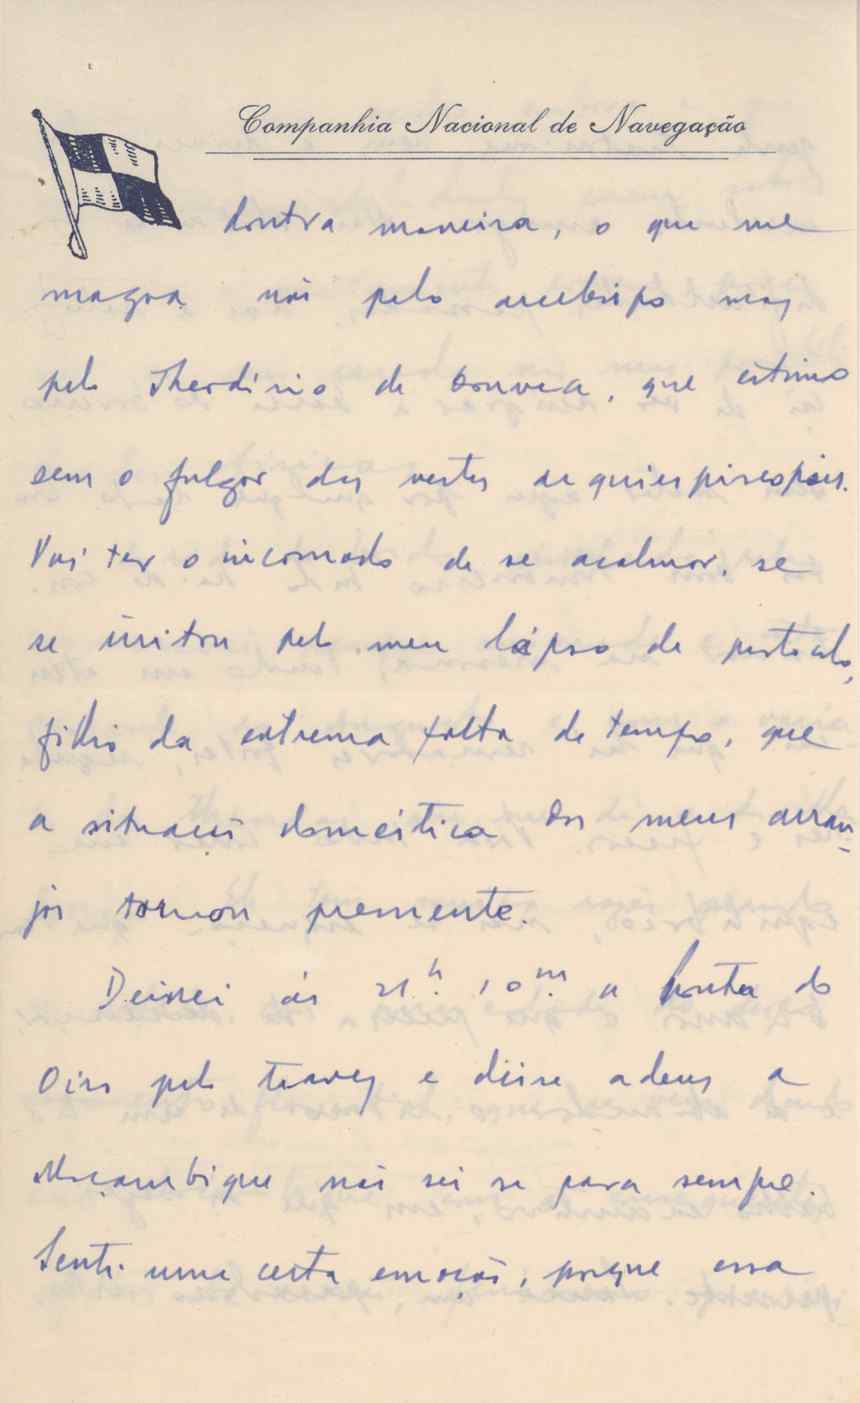 Companhia Nacional de Navegação
doutra maneira, o que me
magoa não pelo arcebispo mas
pelo Theodósio de Gouveia, que estimo
sem o fulgor das vestes arquiespiscopais.
Vai ter o incomodo de se acalmar, se
se irritou pelo meu lápso de protocolo,
filho da extrema falta de tempo, que
a situação doméstica dos meus arran-
jos tornou premente.
Deixei ás 21h. 10m. a Ponta do
Oiro pelo travez e disse adeus a
Moçambique não sei se para sempre.
Senti uma certa emoção, porque essa